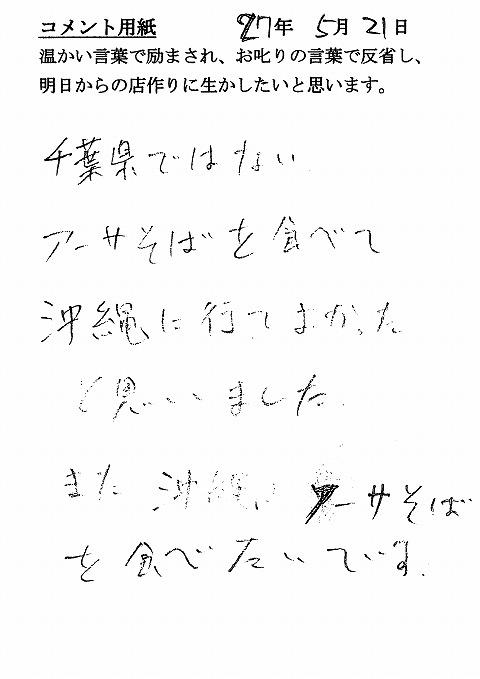 コメント用紙 27年 5月 21日
温かい言葉で励まされ、お叱りの言葉で反省し、
明日からの店作りに生かしたいと思います。
千葉県ではない
アーサそばを食べて
沖縄に行てよかった
と思いました。
また 沖縄に アーサそば
を食べたいです。